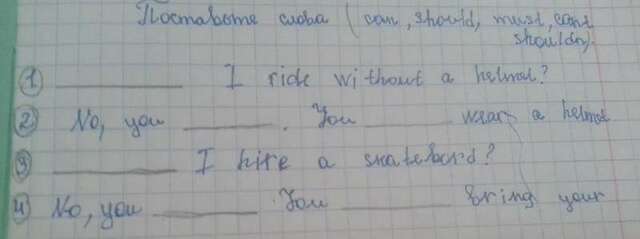 Поставьте слова (can, should, must, cant
shouldn).
① ________ I ride without a helmet?
② No, you ________. You ________ wear a helmet
③ ________ I hire a skateboard?
④ No, you ________. You ________ bring your